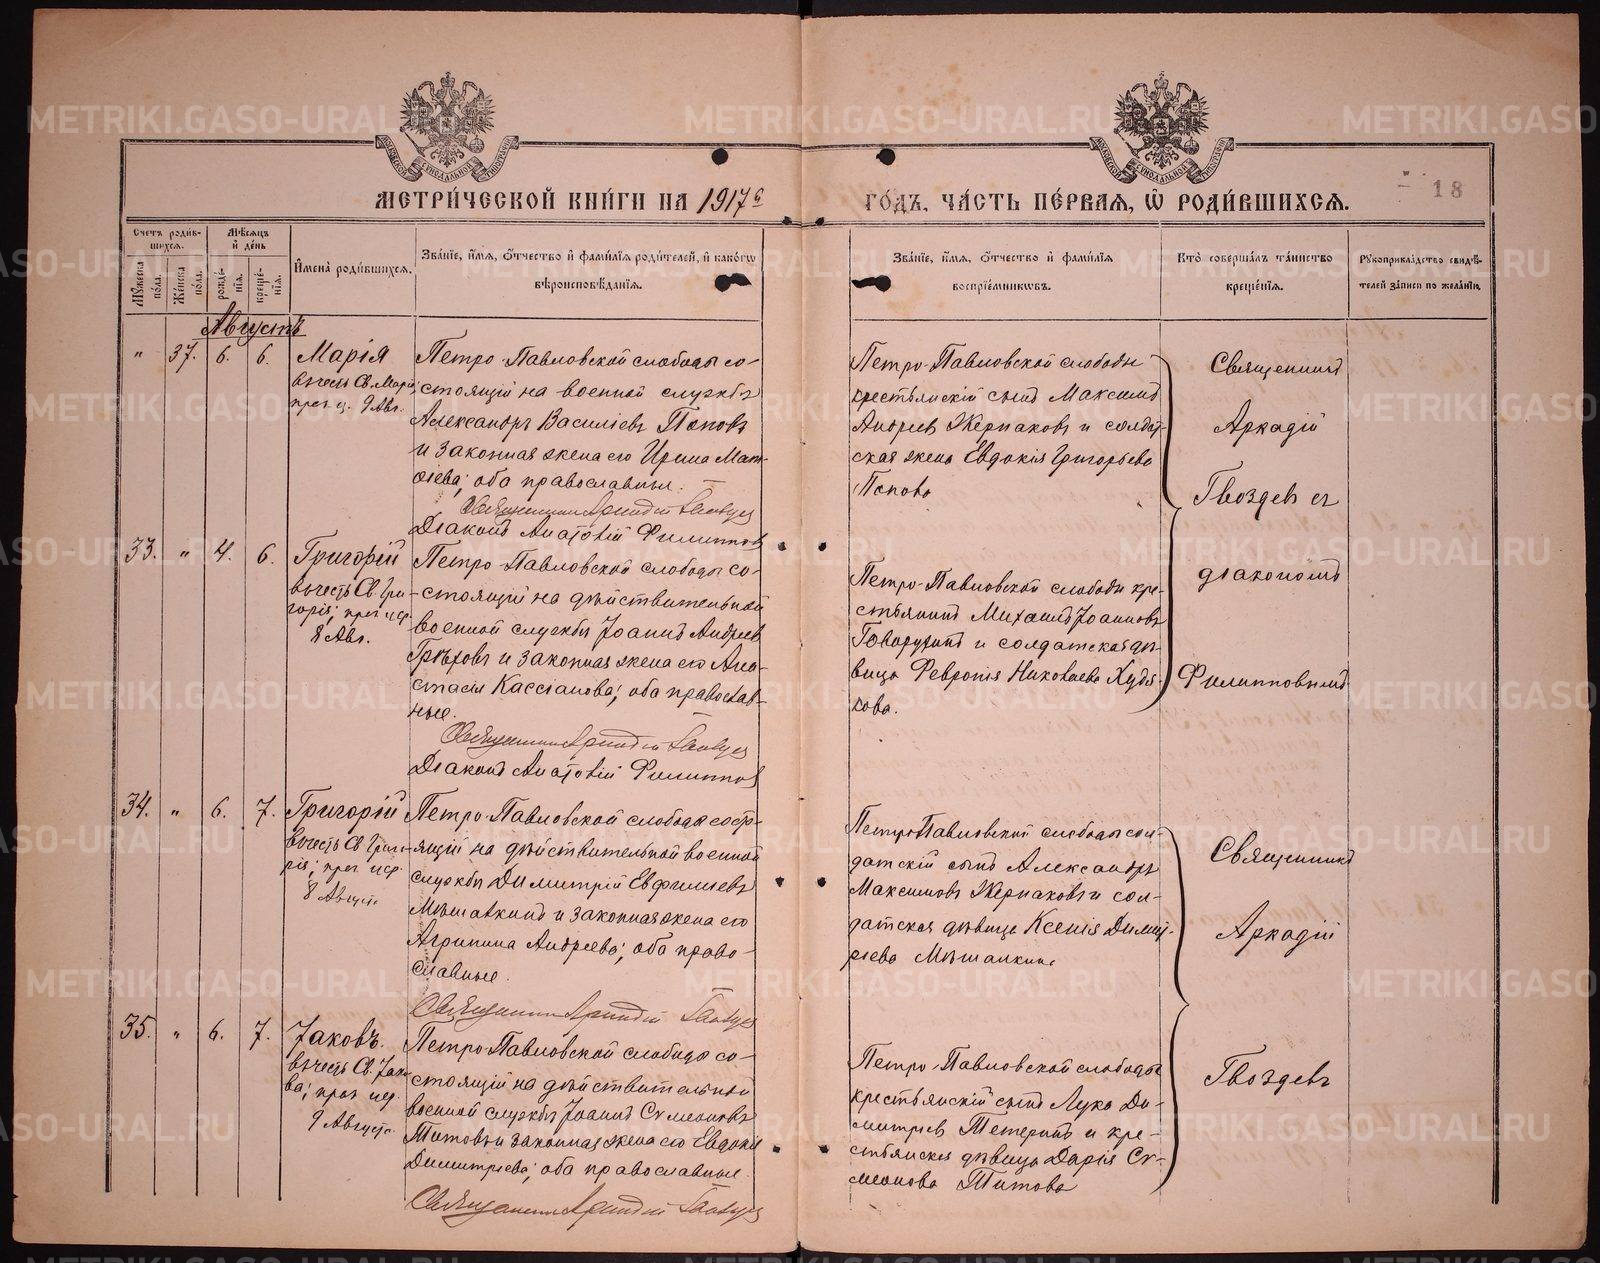 МЕТРИЧЕСКОЙ КНИГИ НА 1917 г ГОДЪ, ЧАСТЬ ПЕРВАЯ, Ѿ РОДИВШИХСЯ.
18
Счетъ родив-
шихся.
Мѣсяцъ
и день
Имена родившихся.
Званіе, имя, отчество и фамилія родителей, и какогѡ
вѣроисповѣданія.
Званіе, имя, отчество и фамилія
воспріемникѡвъ.
Кто совершалъ таинство
крещенія.
Рукоприкладство свидѣ-
телей записи по желанію.
Мужеска пола.
Женска пола.
рожде-
нія.
креще-
нія.
Августъ
" 37. 6. 6.
Марія
въ честь Св. Маріи;
9 Авг.
Петро-Павловской слободы со-
стоящій на военной службѣ
Александръ Василіевъ Поповъ
и законная жена его Ирина Мат-
ѳіева; оба православные.
Священникъ Аркадій Гвоздевъ
Діаконъ Анатолій Филипповъ
Петро-Павловской слободы
крестьянскій сынъ Максимъ
Андреевъ Жернаковъ и солдат-
ская жена Евдокія Григорьева
Попова
Священникъ
Аркадій
Гвоздевъ съ
діакономъ
Филипповымъ
33. " 4. 6.
Григорій
въ честь Св. Гри-
горія;
8 Авг.
Петро-Павловской слободы со-
стоящій на дѣйствительной
военной службѣ Іоаннъ Андреевъ
Грѣховъ и законная жена его Ана-
стасія Кассіанова; оба православ-
ные.
Священникъ Аркадій Гвоздевъ
Діаконъ Анатолій Филипповъ
Петро-Павловской слободы кре-
стьянинъ Михаилъ Іоанновъ
и солдатская дѣ-
вица Февронія Николаева Худя-
кова.
34. " 6. 7.
Григорій
въ честь Св. Григо-
рія;
8 Августа
Петро-Павловской слободы состо-
ящій на дѣйствительной военной
службѣ Димитрій Евфиміевъ
Мѣшалкинъ и законная жена его
Агрипина Андреева; оба право-
славные.
Священникъ Аркадій Гвоздевъ
Петро-Павловской слободы сол-
датскій сынъ Александръ
Максимовъ Жернаковъ и сол-
датская дѣвица Ксенія Димит-
ріева Мѣшалкина
Священникъ
Аркадій
Гвоздевъ
35. " 6. 7.
Іаковъ.
въ честь Св. Іако-
ва;
9 Августа
Петро-Павловской слободы со-
стоящій на дѣйствительной
военной службѣ Іоаннъ Симеоновъ
Титовъ и законная жена его Евдокія
Димитріева; оба православные.
Священникъ Аркадій Гвоздевъ
Петро-Павловской слободы
крестьянскій сынъ Лука Ди-
митріевъ Тетеринъ и кре-
стьянская дѣвица Дарія Си-
меонова Титова
METRIKI.GASO-URAL.RU